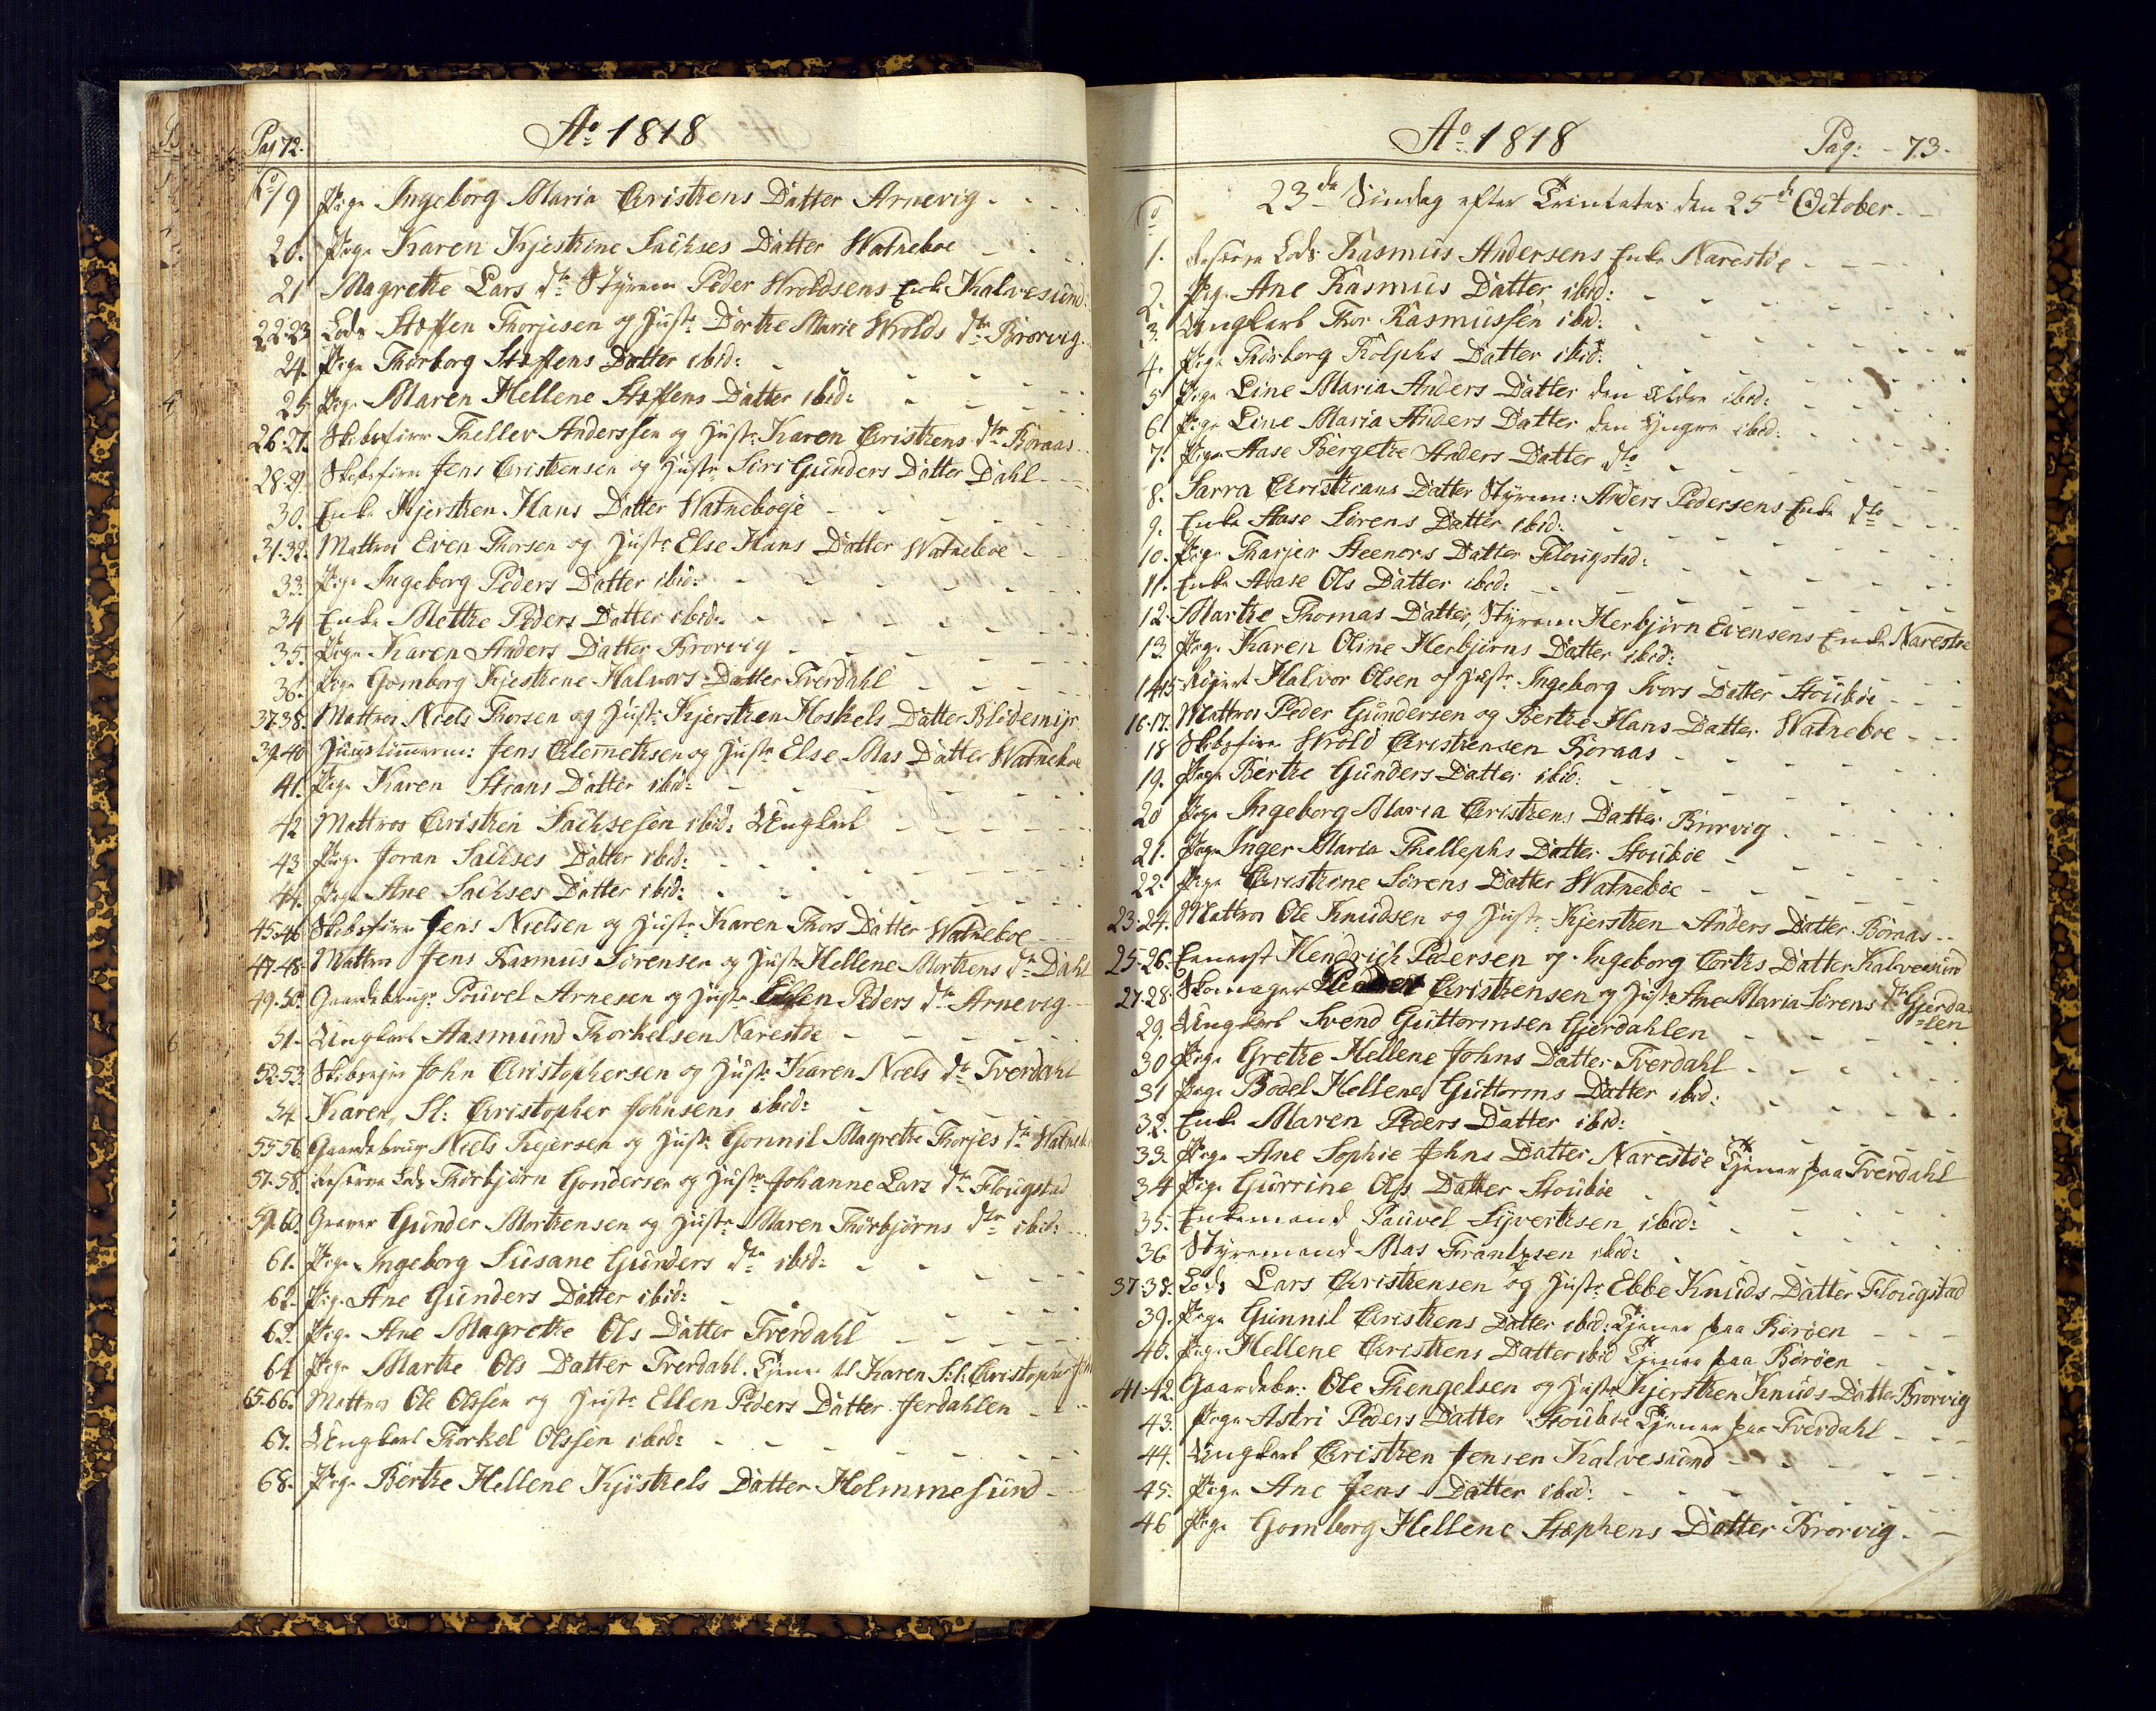 Pag 72.
Ao 1818
No 19 Pige Ingeborg Maria Cristhens Datter Arnevig
20. Pige Karen Kjesthine Sachses Datter Watneboe
21 Magrethe Lars dtr Styrem Peder Wroldsens Enke Kalvesund
22-23 Lods Steffen Thorjusen og Hustr Dorthe Marie Wrolds dtr Brorvig
24. Pige Thorborg Steffens Datter ibid:
25 Pige Maren Hellene Steffens Datter ibid:
26-27. Skibsfører Thellev Anderssen og Hustr Karen Cristhens dtr Boraas
28-29. Skibsfører Jens Cristhensen og Hustr Siri Gunders Datter Dahl
30. Enke Kjersthen Hans Datter Watneboe
31-32. Mattros Even Thorsen og Hustr Else Hans Datter Watneboe
33. Pige Ingeborg Peders Datter ibid:
34 Enke Metthe Peders Datter ibid:
35. Pige Karen Anders Datter Brorvig
36. Pige Gomborg Kjesthene Halvors Datter Tverdahl
37-38. Mattros Niels Thorsen og Hustr Kjersthen Hoskels Datter Blødemyr
39-40 Huustimmerm: Jens Clemethsen og Hustr Else Mas Datter Watneboe
41. Pige Karen Stians Datter ibid:
42 Mattros Cristhen Sachsesen ibid: Ungkarl
43 Pige Joran Sachses Datter ibid:
44. Pige Ane Sachses Datter ibid:
45-46 Skibsfører Jens Nielsen og Hustr Karen Thors Datter Watneboe
47-48- Mattros Jens Rasmus Sørensen og Hustr Hellene Morthens dtr Dahl
49-50. Gaardebrugr Pouvel Arnesen og Hustr Ellen Peders dtr Arnevig
51- Ungkarl Aasmund Thorkelsen Narestøe
52-53. Skibsejer John Cristophersen og Hustr Karen Niels dtr Tverdahl
54. Karen, Sl: Cristopher Johnsens ibid:
55-56 Gaardebrugr Niels Kejersen og Hustr Gonnil Magrethe Thorjes dtr
57-58. Reserve Lods Thorbjørn Gondersen og Hustr Johanne Lars dtr Flougstad
59-60. Graver Gunder Morthensen og Hustr Maren Thorbjørns dtr ibid:
61. Pige Ingeborg Susane Gunders dtr ibid:
62. Pige Ane Gunders Datter ibid:
63. Pige Ane Magrethe Ols Datter Tverdahl
64 Pige Marthe Ols Datter Tverdahl. Tjener hl Karen Sl: Cristopher
65-66. Mattros Ole Olssen og Hustr Ellen Peders Datter Jerdahlen
67. Ungkarl Thorkel Olssen ibid:
68. Pige Berthe Hellene Kjøsthels Datter Holmmesund
Ao 1818
Pag: 73.
23de Søndag efter Trinitates den 25de October
No 1. Reserve Lods Rasmus Andersens Enke Narestøe
2. Pige Ane Rasmus Datter ibid:
3. Ungkarl Thor Rasmussen ibid:
4. Pige Thorborg Rolphs Datter ibid:
5 Pige Line Maria Anders Datter den ældre ibid:
6. Pige Line Maria Anders Datter den yngre ibid:
7. Pige Aase Bergethe Anders Datter dto
8. Sarra Cristhians Datter Styrem: Anders Pedersens Enke dto
9. Enke Aase Sørens Datter ibid:
10. Pige Tharjer Steenors Datter Flougstad:
11. Enke Aase Ols Datter ibid:
12. Marthe Thomas Datter, Styrem Herbjørn Evensens Enke Narestøe
13 Pige Karen Oline Herbjørns Datter ibid:
14-15 Halvor Olsen og Hustr Ingeborg Ivors Datter Stoubøe
16-17. Mattros Peder Gundersen og Berthe Hans Datter Watneboe
18 Skibsfører Wrold Cristhensen Boraas
19. Pige Berthe Gunders Datter ibid:
20 Pige Ingeborg Maria Cristhens Datter Brorvig
21. Pige Inger Maria Thellephs Datter Stoubøe
22. Pige Cristhine Sørens Datter Watneboe
23-24. Mattros Ole Knudsen og Hustr Kjersthen Anders Datter Boraas
25-26. Hendrich Pedersen og Ingeborg Corths Datter Kalvesund
27-28. Skomager Cristhensen og Hustr Ane Maria Sørens dtr Gjerda=
=len
29. Ungkarl Svend Guttormsen Gjerdahlen
30 Pige Grethe Hellene Johns Datter Tverdahl
31 Pige Bodel Hellene Guttorms Datter ibid:
32. Enke Maren Peders Datter ibid:
33. Pige Ane Sophie Johns Datter Narestøe Tjener paa Tverdahl
34 Pige Gurrine Ols Datter Stoubøe
35. Enkemand Pauvel Syverthsen ibid:
36 Styremand Mas Frantzsen ibid:
37-38. Lods Lars Cristhensen og Hustr Ebbe Knuds Datter Flougstad
39. Pige Gunnil Cristhens Datter ibid: Tjener paa Borøen
40. Pige Hellene Cristhens Datter ibid Tjener paa Borøen
41-42. Gaardebr: Ole Thengelsen og Hustr Kjersthen Knuds Datter Brorvig
43. Pige Astri Peders Datter Stoubøe Tjener paa Tverdahl
44. Ungkarl Cristhen Jensen Kalvesund
45. Pige Ane Jens Datter ibid:
46 Pige Gomborg Hellene Stephens Datter Brorvig.